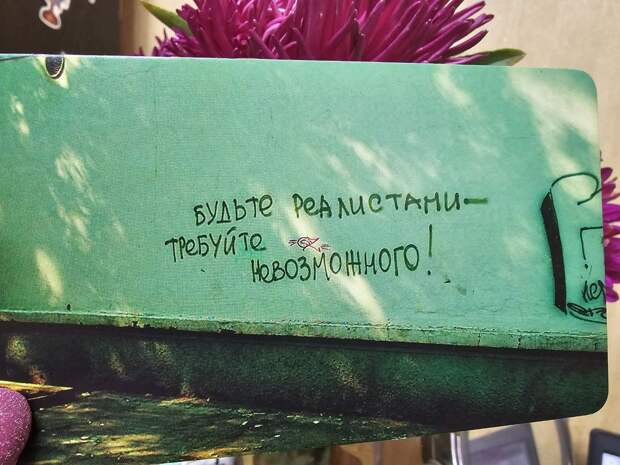 БУДЬТЕ РЕАЛИСТАМИ—
ТРЕБУЙТЕ
НЕВОЗМОЖНОГО!